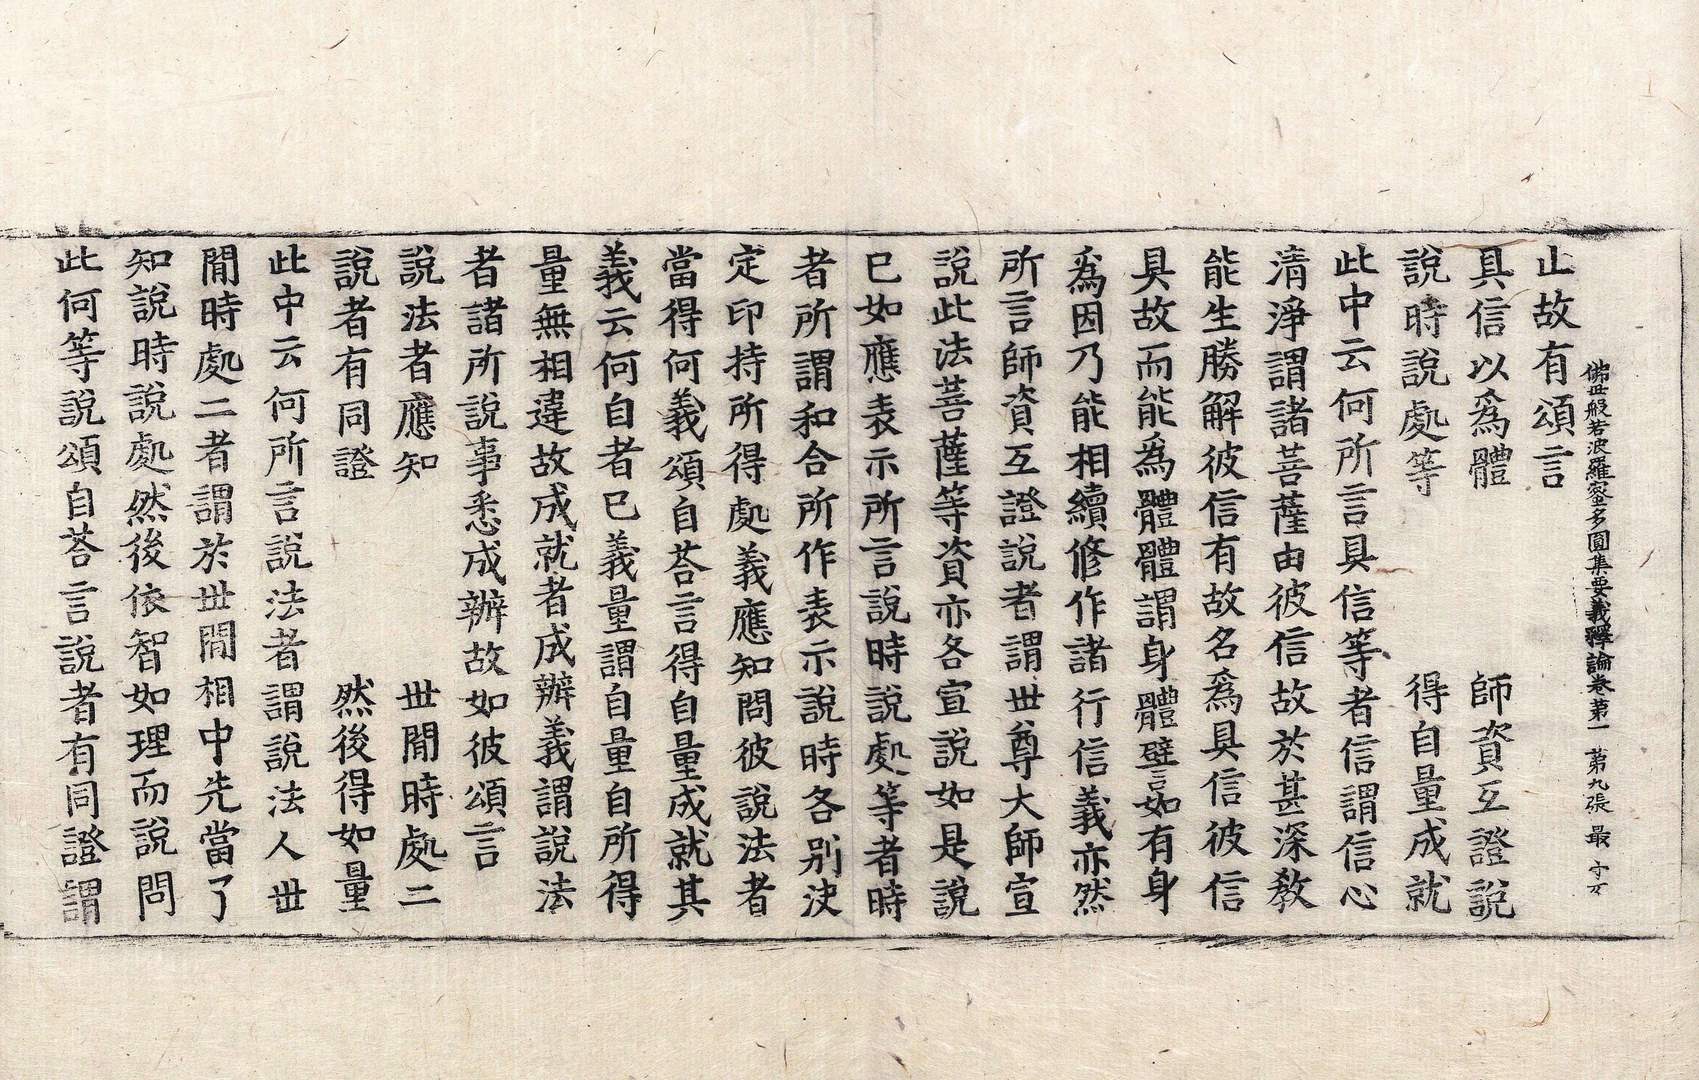 佛母般若波羅蜜多圓集要義釋論卷第一 第九張 最
止故有頌言
具信以爲體 師資互證說
說時說處等 得自量成就
此中云何所言具信等者信謂信心
清淨謂諸菩薩由彼信故於甚深教
能生勝解彼信有故名爲具信彼信
具故而能爲體體謂身體譬言如有身
爲因乃能相續修作諸行信義亦然
所言師資互證說者謂世尊大師宣
說此法菩薩等資亦各宣說如是說
已如應表示所言說時說處等者時
者所謂和合所作表示說時各別決
定印持所得處義應知問彼說法者
當得何義頌自荅言得自量成就其
義云何自者已義量謂自量自所得
量無相違故成就者成辦義謂說法
者諸所說事悉成辦故如彼頌言
說法者應知 世間時處二
說者有同證 然後得如量
此中云何所言說法者謂說法人世
間時處二者謂於世間相中先當了
知說時說處然後依智如理而說問
此何等說頌自荅言說者有同證謂